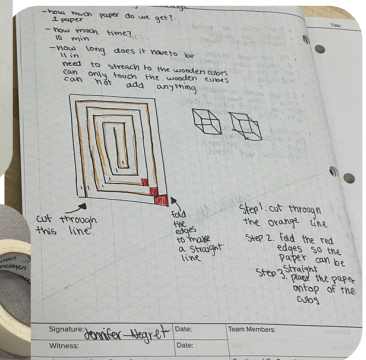 -how much paper do we get?
1 paper
-how much time?
10 min
-how long does it have to be
11 in
need to streach to the wooden cubes
can only touch the wooden cubes
can not add anything
cut through
this line
fold
the
edges
to make
a straight
line
Step 1. cut through
the orange line
Step 2. fold the red
edges so the
paper can be
straight
Step 3. place the paper
ontop of the
cubs
Signature: Jennifer Negret
Date:
Team Members:
Witness:
Date:
Title